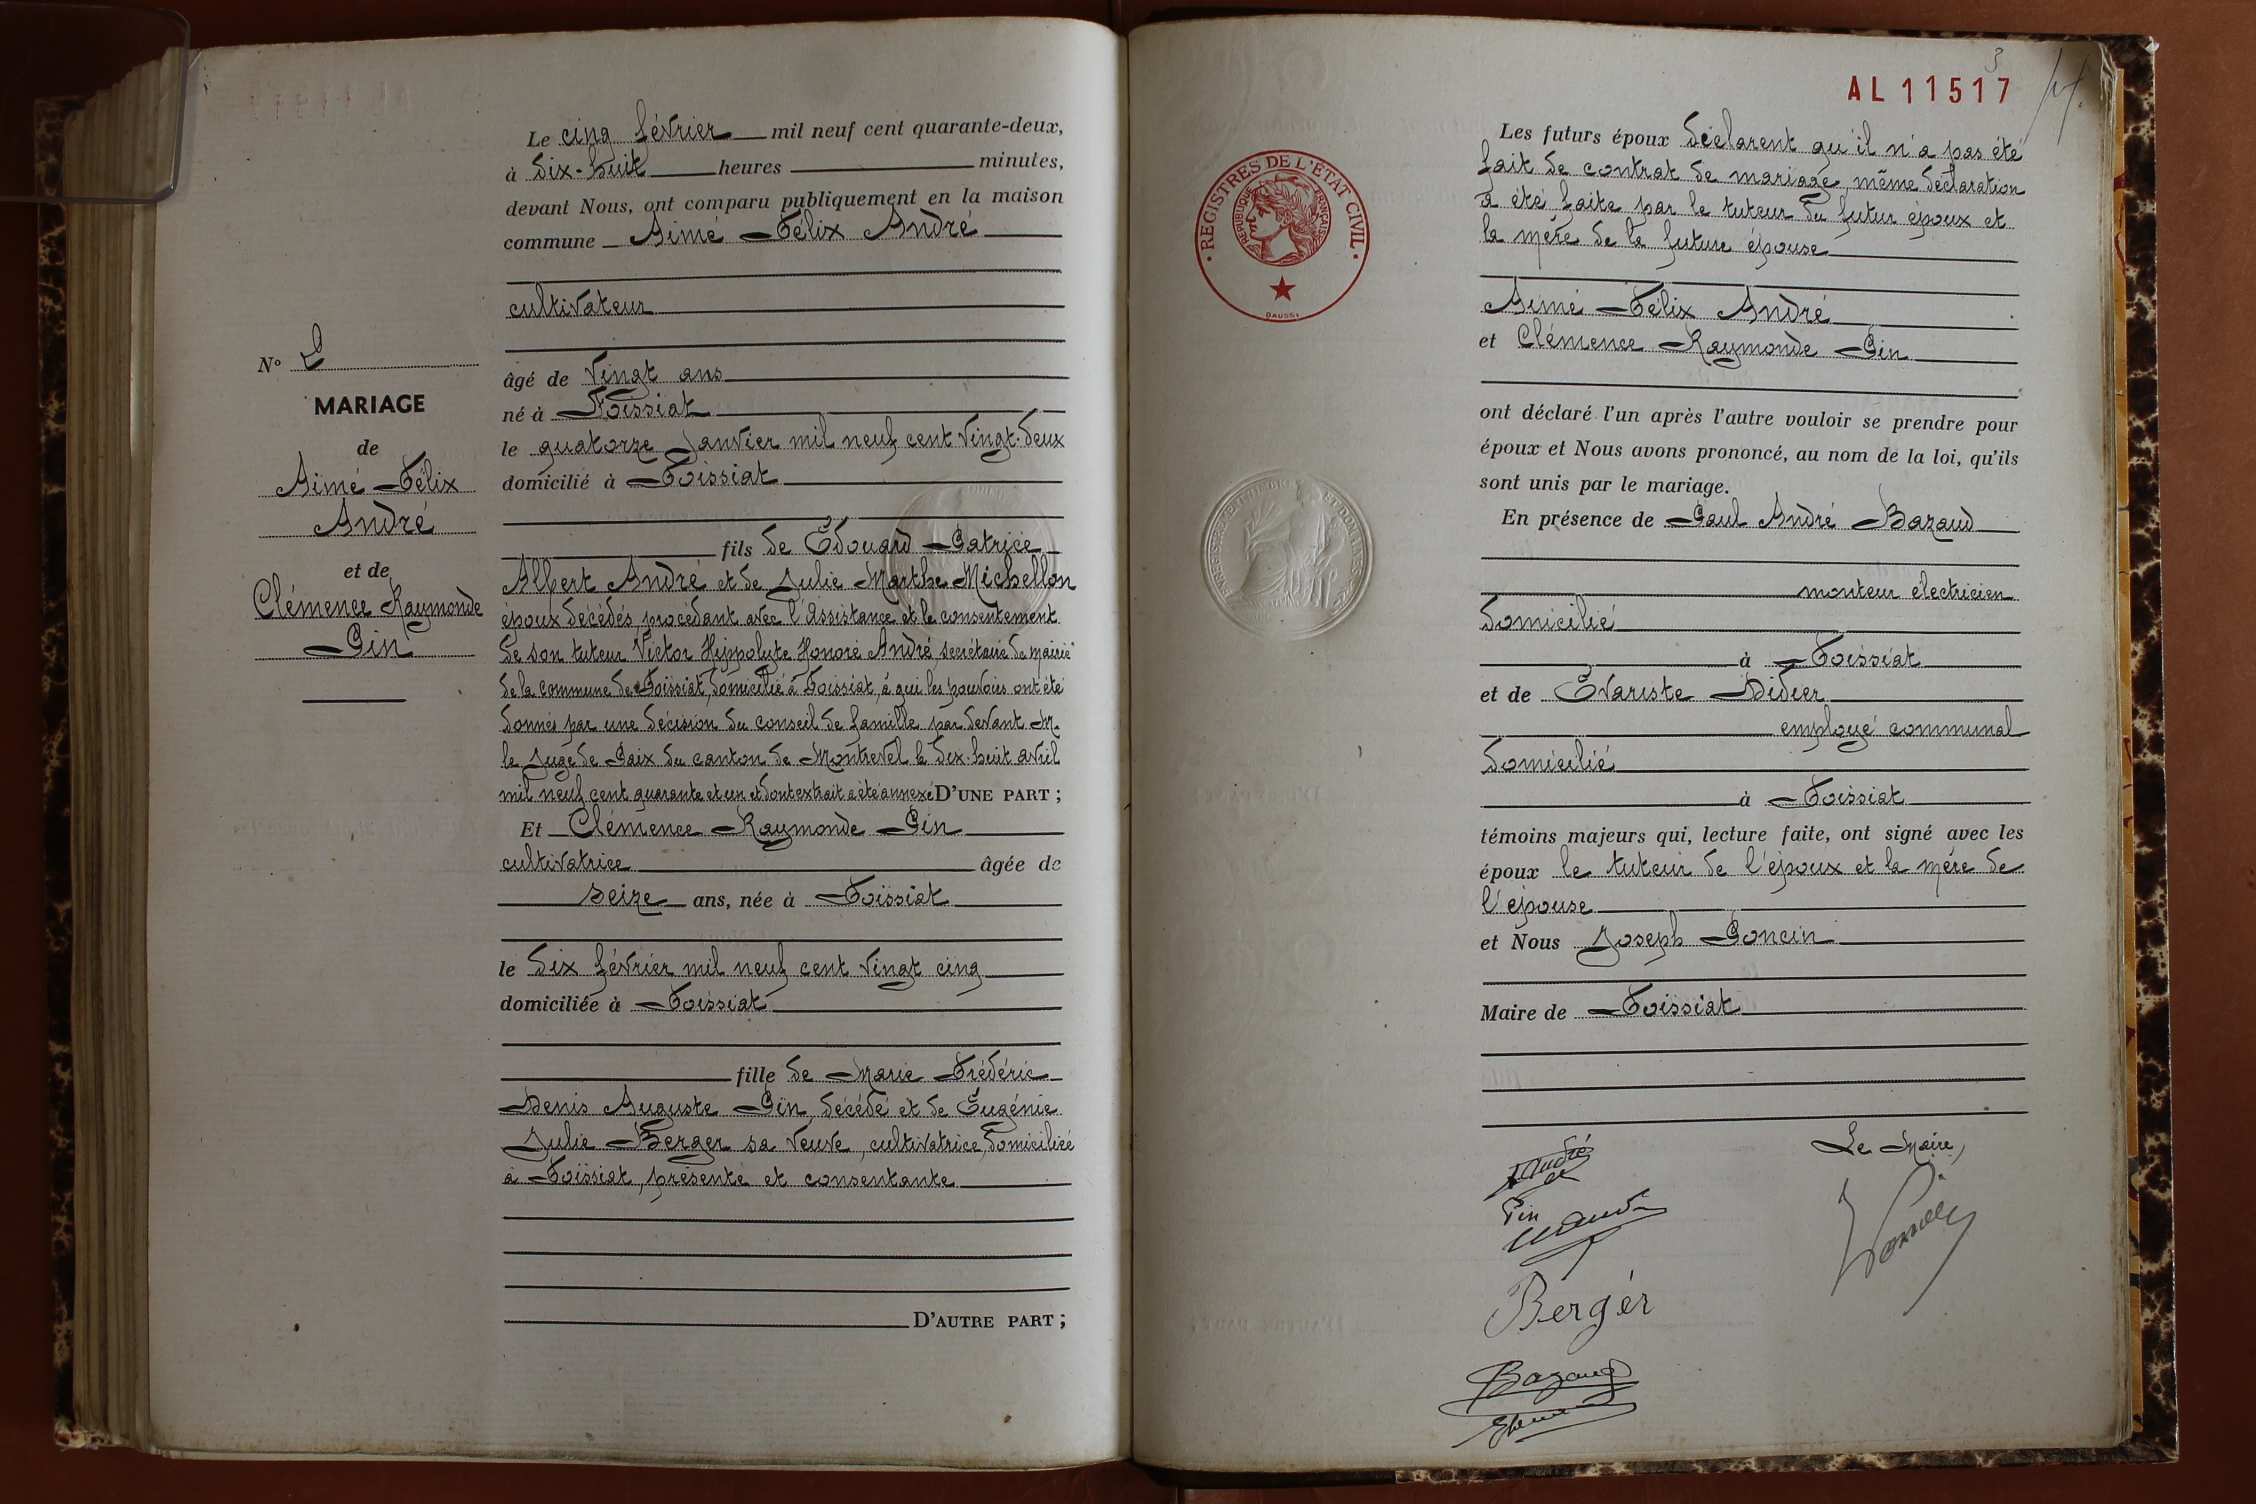 Le cinq février mil neuf cent quarante-deux,
à dix-huit heures minutes,
devant Nous, ont comparu publiquement en la maison
commune Aimé Félix André
cultivateur
âgé de vingt ans
né à Foissiat
le quatorze Janvier mil neuf cent vingt-deux
domicilié à Foissiat
fils de Edouard Patrice
Albert André et de Julie Marthe Michellon
époux décédés, procédant avec l'assistance et le consentement
de son tuteur Victor Hippolyte Honoré André, secrétaire de mairie
de la commune de Foissiat, domicilié à Foissiat, à qui les pouvoirs ont été
donnés par une décision du conseil de famille par devant M.
le Juge de Paix du canton de Montrevel le dix-huit avril
mil neuf cent quarante et un et dont extrait a été annexé D'UNE PART ;
Et Clémence Raymonde Pin
cultivatrice âgée de
seize ans, née à Foissiat
le dix février mil neuf cent vingt cinq
domiciliée à Foissiat
fille de Marie Frédéric
Denis Auguste Pin, décédé et de Eugénie
Julie Berger sa veuve, cultivatrice, domiciliée
à Foissiat, présente et consentante
D'AUTRE PART ;
N° 2
MARIAGE
de
Aimé Félix
André
et de
Clémence Raymonde
Pin
3
AL 11517
REGISTRES DE L'ETAT CIVIL
REPUBLIQUE FRANÇAISE
DAUSSY
Les futurs époux déclarent qu'il n'a pas été
fait de contrat de mariage, même déclaration
a été faite par le tuteur du futur époux et
la mère de la future épouse
Aimé Félix André
et Clémence Raymonde Pin
ont déclaré l'un après l'autre vouloir se prendre pour
époux et Nous avons prononcé, au nom de la loi, qu'ils
sont unis par le mariage.
En présence de Paul André Bazaud
monteur électricien
domicilié
à Foissiat
et de Evariste Didier
employé communal
domicilié
à Foissiat
témoins majeurs qui, lecture faite, ont signé avec les
époux le tuteur de l'époux et la mère de
l'épouse
et Nous Joseph Poncin
Maire de Foissiat
Le Maire,
André
Pin
Berger
Bazaud